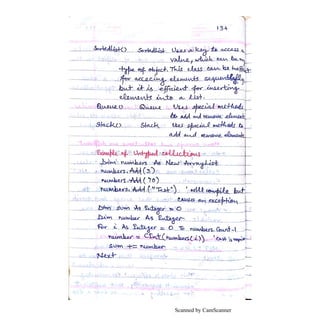 134
SortedList() SortedList Uses a key to access a
value, which can be any
type of object. This class can be
for accessing elements sequentially,
but it is efficient for inserting
elements into a list.
Queue() Queue Uses special methods
to add and remove element
Stack() Stack Uses special methods to
add and remove elements
Example of Untyped collections
Dim numbers As New ArrayList
numbers.Add(3)
numbers.Add(70)
numbers.Add("Test") 'will compile but
cause an exception
Dim sum As Integer = 0
Dim number As Integer
For i As Integer = 0 To numbers.Count-1
number = CInt(numbers(i)) 'cast is
sum += number
Next
Scanned by CamScanner